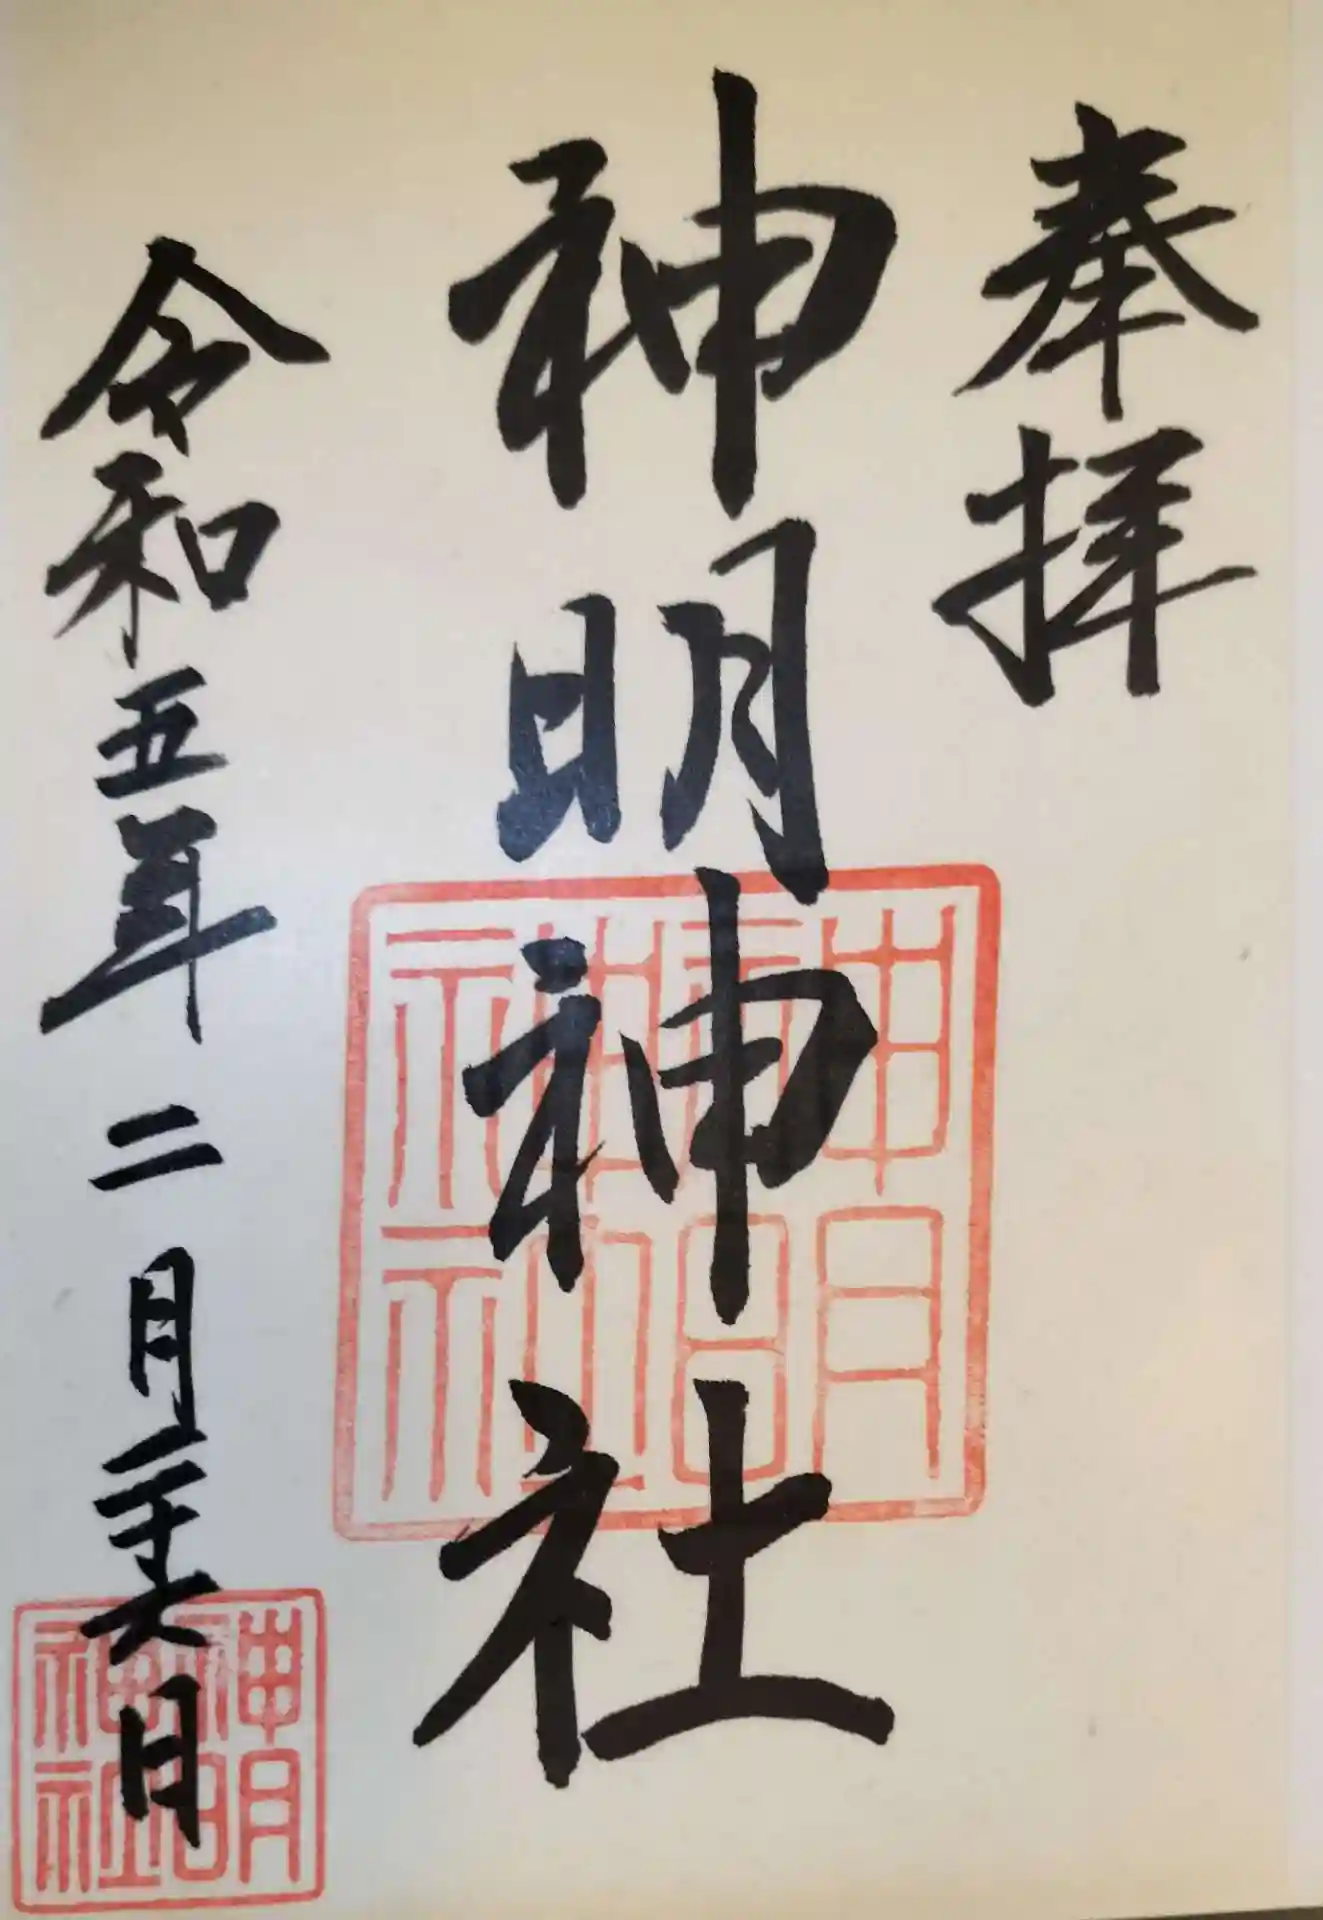 奉拝
神明神社
令和五年二月二十六日
神明
神社
神明
神社